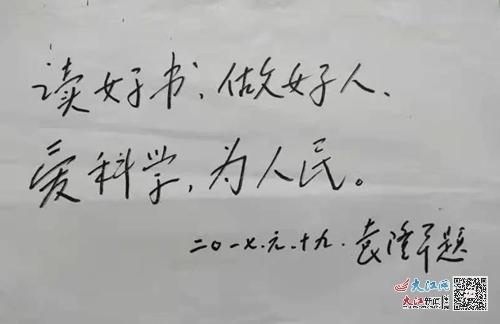 读好书、做好人、
爱科学，为人民。
二〇一七.元.十九.袁隆平题
大江网
大江新闻